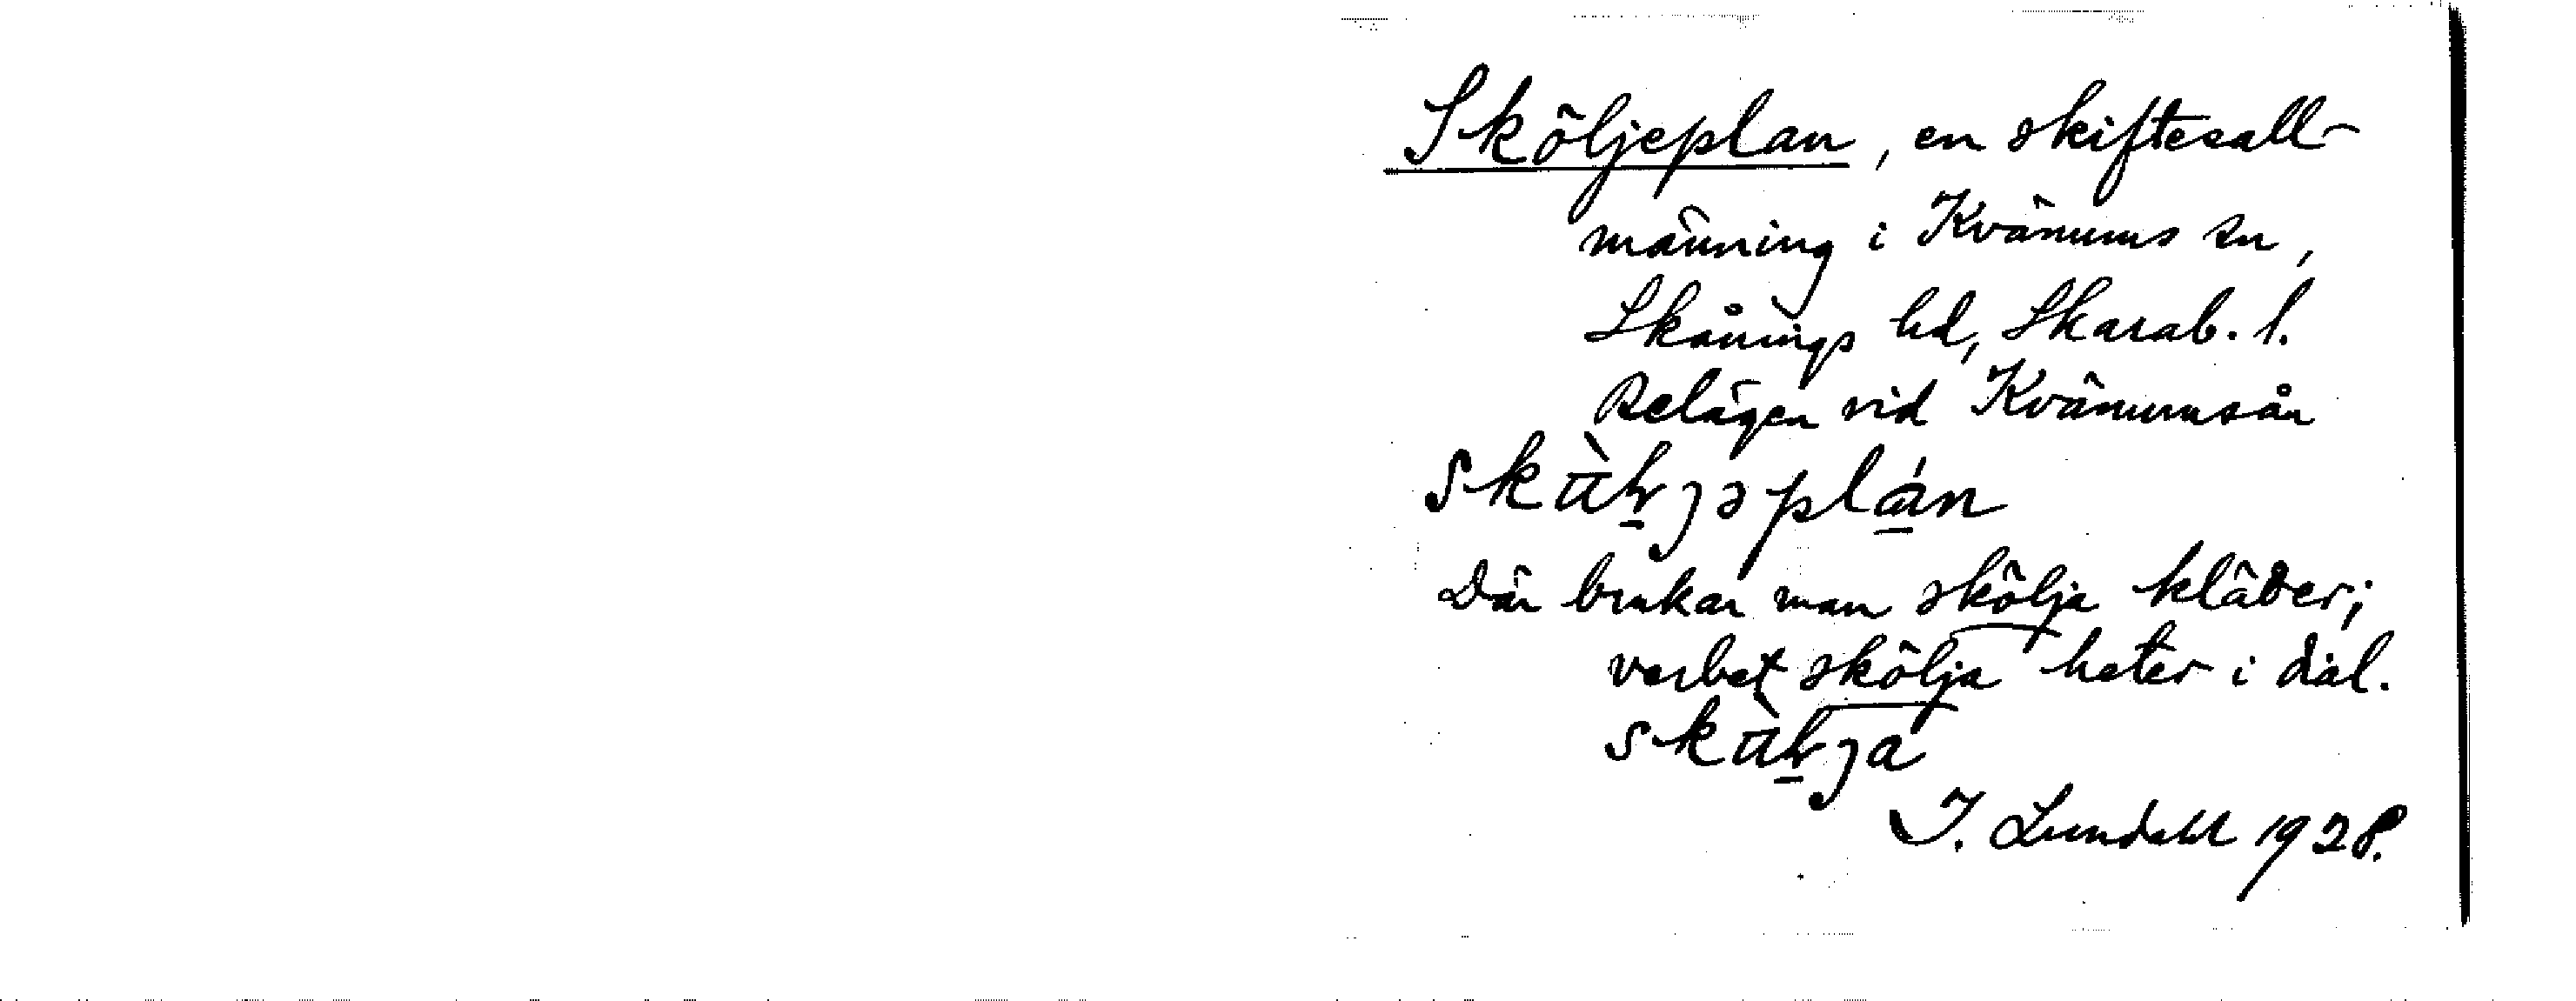 Sköljeplan, en skiftesall-
männing i Kvänums sn,
Skånings hd, Skarab. l.
Belägen vid Kvänumsån
Där brukar man skölja kläder;
verbet skölja heter i dial.
I. Lundahl 1928.